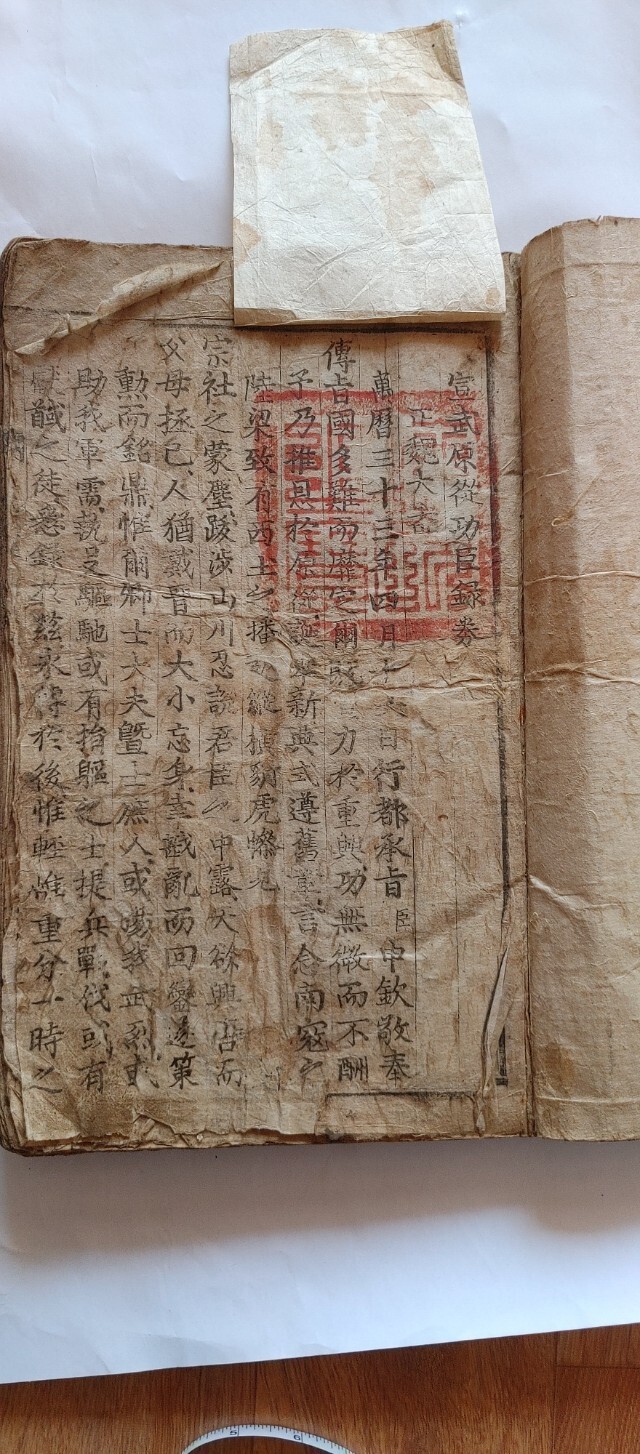 宣武原從功臣錄券
正魏大
萬曆三十三年四月十日行都承旨臣申欽敬奉
傳旨國多難而靡定爾力於重興功無微而不酬
予乃推恩於原從誕擧新典式遵舊章言念南寇之
陸梁致有西土之播縱豺虎
宗社之蒙塵跋涉山川忍說君臣之中露天欲興唐而
父母拯己人猶戴晉而大小忘身戡亂而回鑾遂第
勳而銘鼎惟爾卿士大夫曁士庶人或揚我武烈或
助我軍需執殳驅馳或有捐軀之士提兵戰伐或有
獻馘之徒悉錄於玆永傳於後惟輕惟重分一時之